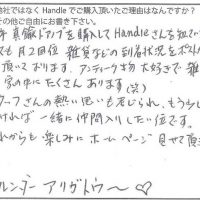 他社ではなく Handle でご購入頂いたご理由はなんですか？
その他ご自由にお書き下さい。
真鍮ドアノブを購入してHandleさんを知って
も月2回位 雑貨などの到着状況をのぞ
頂いております。アンティーク物大好きで雑
家の中にたくさんあります(笑)
タッフさんの熱い思いも感じられ、もう少し
ければ一緒に仲間入りしたい位です。
れからも楽しみにホームページ見せて頂
レンダー アリガトウ〜♡